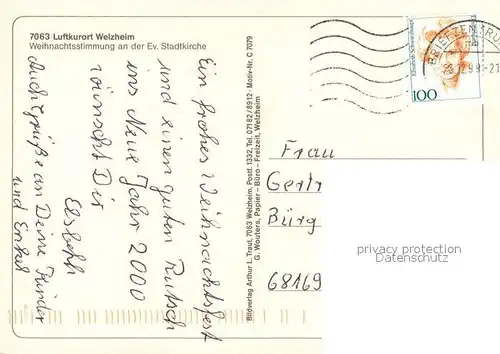 7063 Luftkurort Welzheim
Weihnachtsstimmung an der Ev. Stadtkirche
Ein frohes Weihnachtsfest
und einen guten Rutsch
ins Neue Jahr 2000
wünscht Dir
Elsbeth
Auch Grüße an Deine Kinder
und Enkel
Bildverlag Arthur L. Traut, 7063 Welzheim, Postf. 1332, Tel. 07182/8912 · Motiv-Nr. C 7079
G. Wouters, Papier – Büro – Freizeit, Welzheim
BRIEFZENTRUM
mb
-21
100
Frau
Gertr
Bürg
68169
privacy protection
Datenschutz